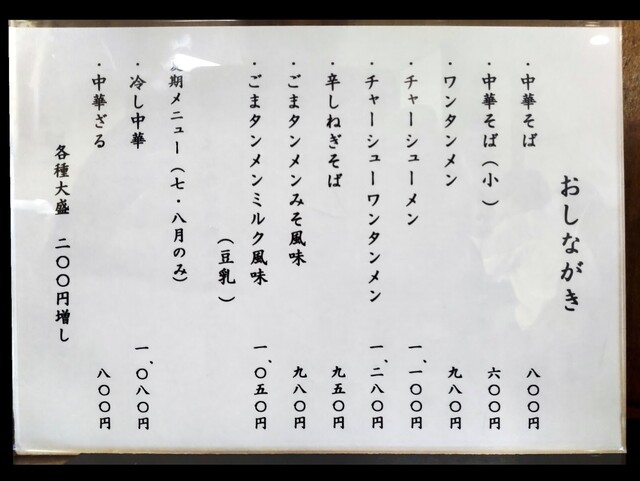 おしながき
・中華そば 八〇〇円
・中華そば（小） 六〇〇円
・ワンタンメン 九八〇円
・チャーシューメン 一、一〇〇円
・チャーシューワンタンメン 一、二八〇円
・辛しねぎそば 九五〇円
・ごまタンメンみそ風味 九八〇円
・ごまタンメンミルク風味 一、〇五〇円
（豆乳）
期メニュー（七・八月のみ）
・冷し中華 一、〇八〇円
・中華ざる 八〇〇円
各種大盛 二〇〇円増し